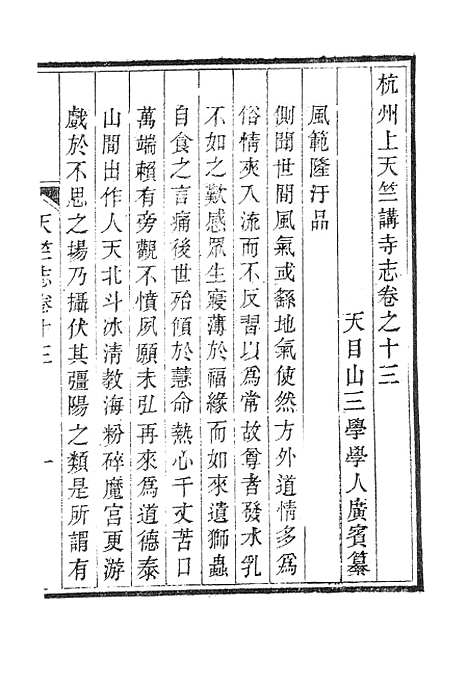 杭州上天竺講寺志卷之十三
天目山三學學人廣賓纂
風範隆汙品
側聞世間風氣或繇地氣使然方外道情多為
俗情夾入流而不反習以為常故尊者發水乳
不如之歎感眾生寖薄於福緣而如來遺獅蟲
自食之言痛後世殆傾於慧命熱心千丈苦口
萬端賴有旁觀不憤夙願未弘再來為道德泰
山間出作人天北斗冰清教海粉碎魔宮更游
戲於不思之場乃攝伏其彊陽之類是所謂有
天竺志卷十三
一